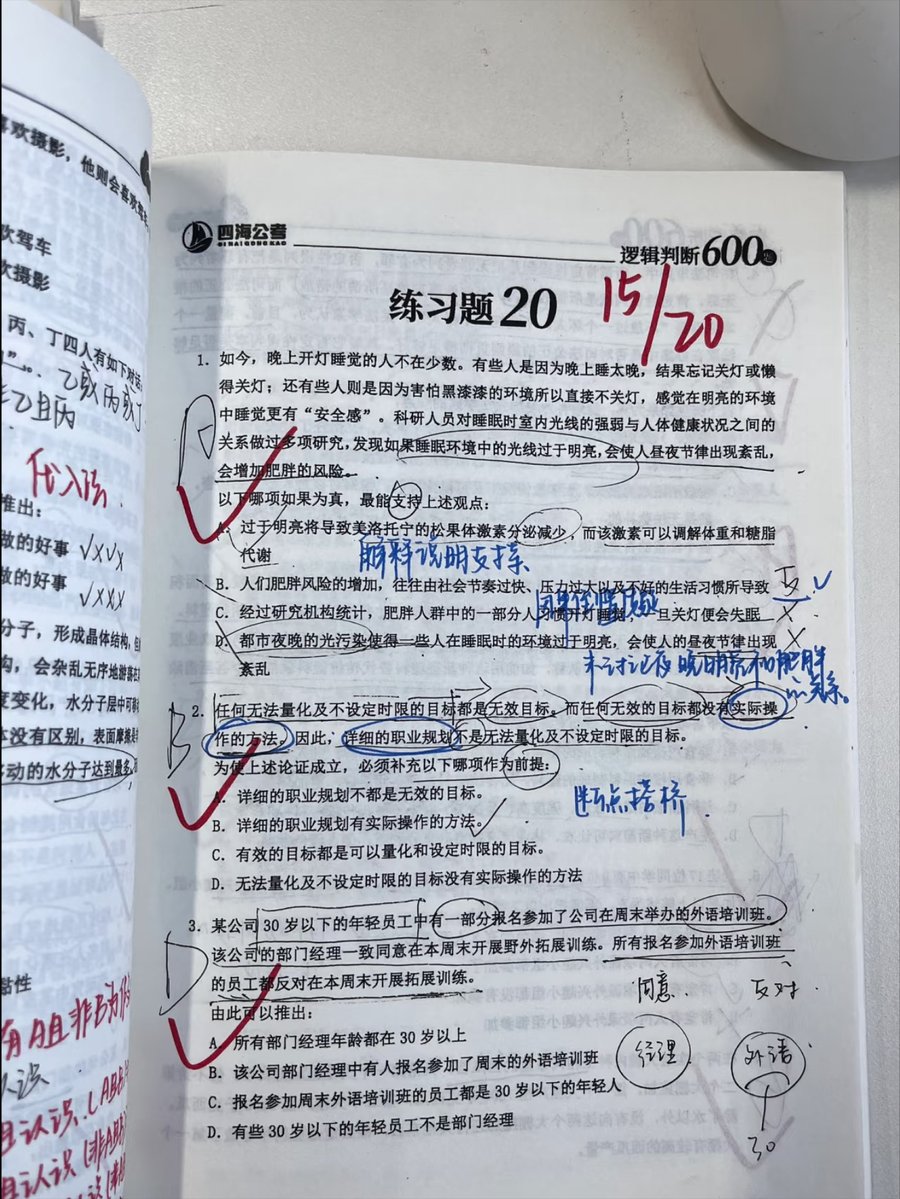 喜欢摄影，他则会喜欢驾车
欢驾车
欢摄影
丙、丁四人有如下对话
代入法
推出：
做的好事 √×√×
做的好事 √×××
分子，形成晶体结构，
构，会杂乱无序地游
度变化，水分子层中可
没有区别，表面摩
移动的水分子达到最多
四海公考
SI HAI GONG KAO
逻辑判断600题
练习题 20
15/20
1. 如今，晚上开灯睡觉的人不在少数。有些人是因为晚上睡太晚，结果忘记关灯或懒
得关灯；还有些人则是因为害怕黑漆漆的环境所以直接不关灯，感觉在明亮的环境
中睡觉更有“安全感”。科研人员对睡眠时室内光线的强弱与人体健康状况之间的
关系做过多项研究，发现如果睡眠环境中的光线过于明亮，会使人昼夜节律出现紊乱，
会增加肥胖的风险。
A
以下哪项如果为真，最能支持上述观点：
A. 过于明亮将导致美洛托宁的松果体激素分泌减少，而该激素可以调解体重和糖脂
代谢
解释说明支持
B. 人们肥胖风险的增加，往往由社会节奏过快、压力过大以及不好的生活习惯所导致
C. 经过研究机构统计，肥胖人群中的一部分人习惯开灯睡觉，一旦关灯便会失眠
D. 都市夜晚的光污染使得一些人在睡眠时的环境过于明亮，会使人的昼夜节律出现
紊乱
未讨论夜晚明亮和肥胖
的关系
2. 任何无法量化及不设定时限的目标都是无效目标。而任何无效的目标都没有实际操
作的方法，因此，详细的职业规划不是无法量化及不设定时限的目标。
B
为使上述论证成立，必须补充以下哪项作为前提：
A. 详细的职业规划不都是无效的目标。
B. 详细的职业规划有实际操作的方法。
断点搭桥
C. 有效的目标都是可以量化和设定时限的目标。
D. 无法量化及不设定时限的目标没有实际操作的方法
3. 某公司 30 岁以下的年轻员工中有一部分报名参加了公司在周末举办的外语培训班。
该公司的部门经理一致同意在本周末开展野外拓展训练。所有报名参加外语培训班
的员工都反对在本周末开展拓展训练。
D
由此可以推出：
同意 反对
A. 所有部门经理年龄都在 30 岁以上
B. 该公司部门经理中有人报名参加了周末的外语培训班
经理 外语
C. 报名参加周末外语培训班的员工都是 30 岁以下的年轻人
D. 有些 30 岁以下的年轻员工不是部门经理
30